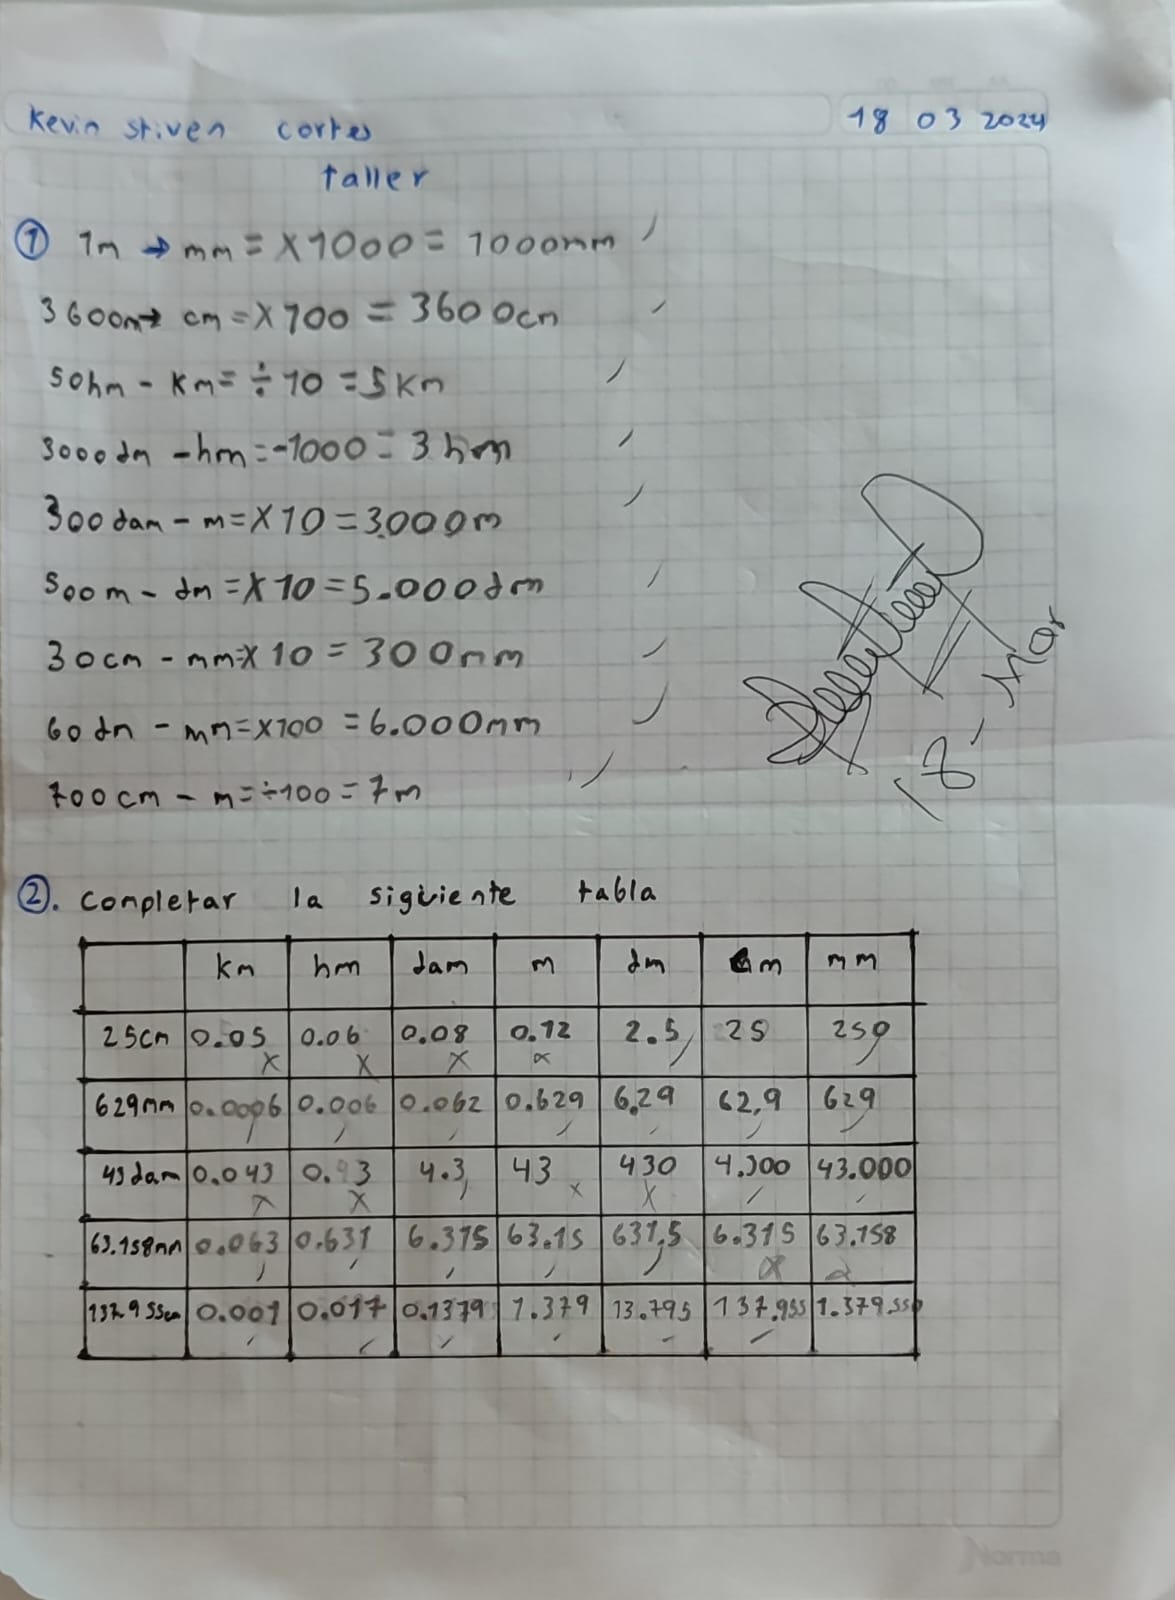 Kevin stiven cortes 18 03 2024
taller
① 1m → mm = X 1000 = 1000mm
3600m → cm = X 100 = 3600cm
50hm - Km = ÷ 10 = 5 Km
3000dm - hm = -1000 = 3 hm
300dam - m = X 10 = 3.000m
500m - dm = X 10 = 5.000dm
30cm - mm = X 10 = 300mm
60dm - mm = X100 = 6.000mm
700cm - m = ÷100 = 7m
18 - Mar
②. completar la siguiente tabla
km hm dam m dm cm mm
25cm 0.05 0.06 0.08 0.12 2.5 25 250
629mm 0.0006 0.006 0.062 0.629 6,29 62,9 629
43dam 0.043 0.43 4.3 43 430 4.300 43.000
63.158mm 0.063 0.631 6.315 63.15 631,5 6.315 63.158
137.955cm 0.001 0.017 0.1379 1.379 13.795 137.955 1.379.550
Norma